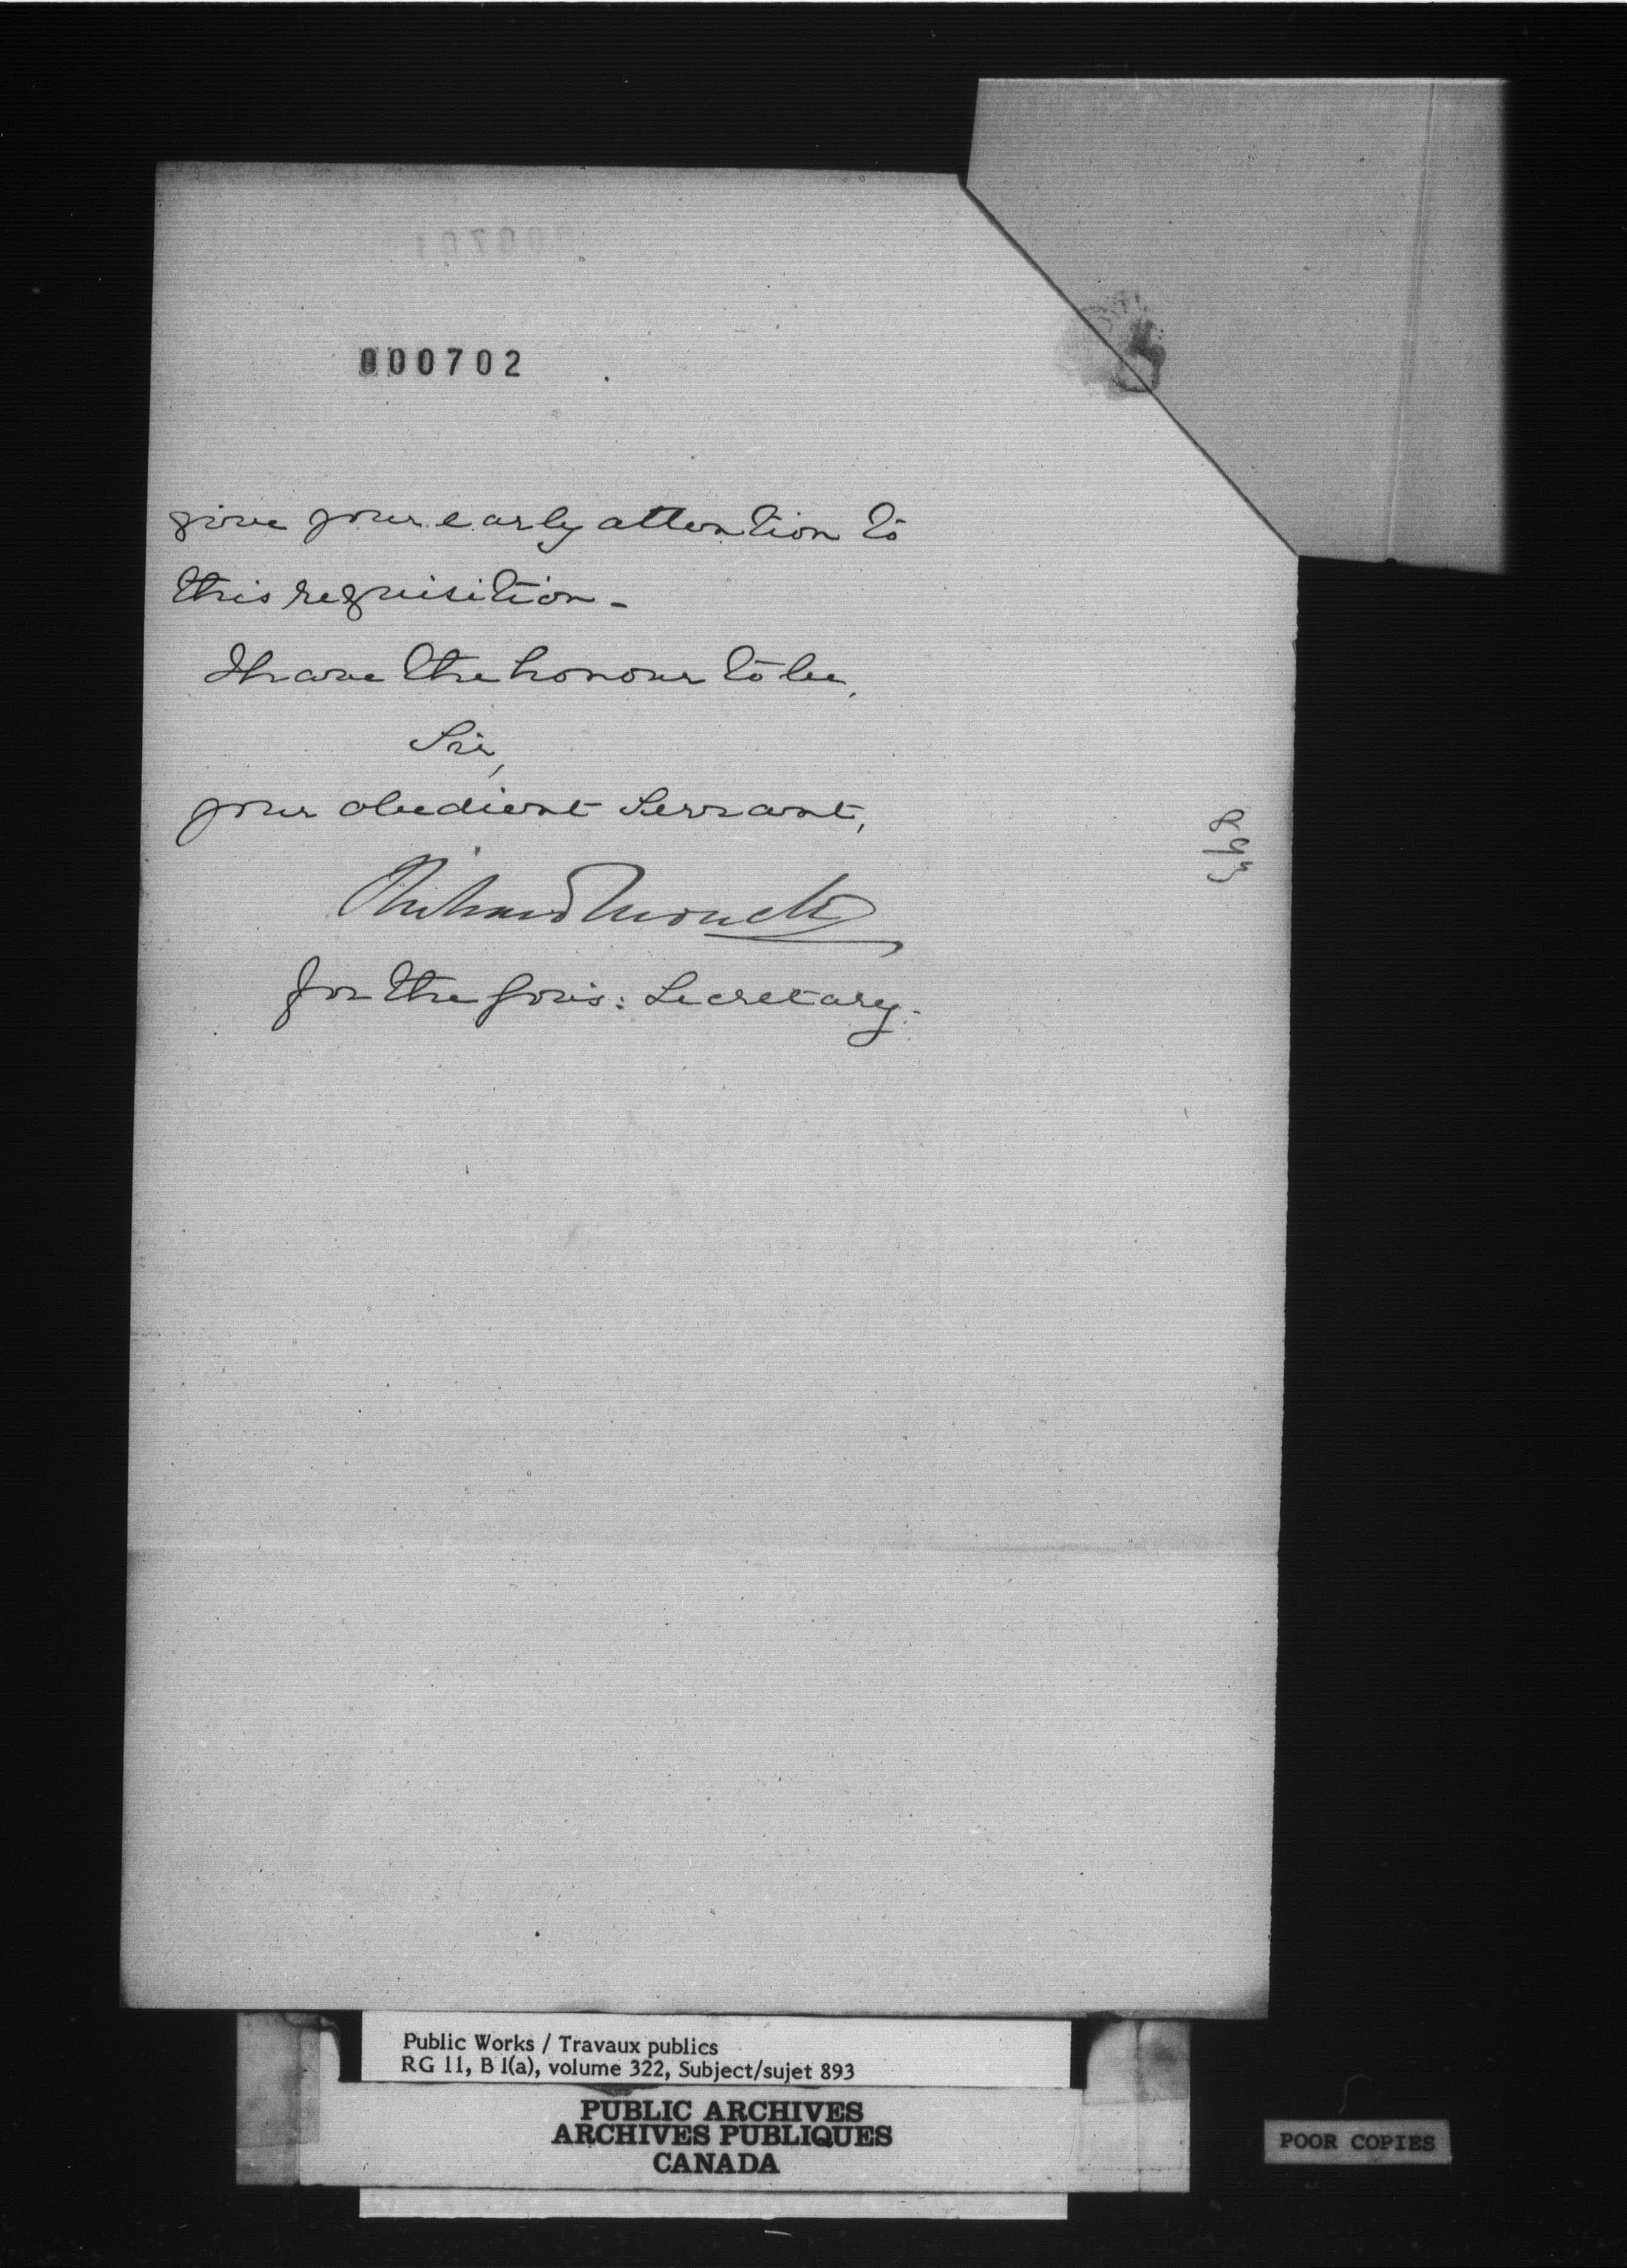 000702
give your early attention to
this requisition -
I have the honour to be,
Sir,
your obedient Servant,
Richard Monck
for the Gov's: Secretary.
893
Public Works / Travaux publics
RG 11, B 1(a), volume 322, Subject/sujet 893
PUBLIC ARCHIVES
ARCHIVES PUBLIQUES
CANADA
POOR COPIES